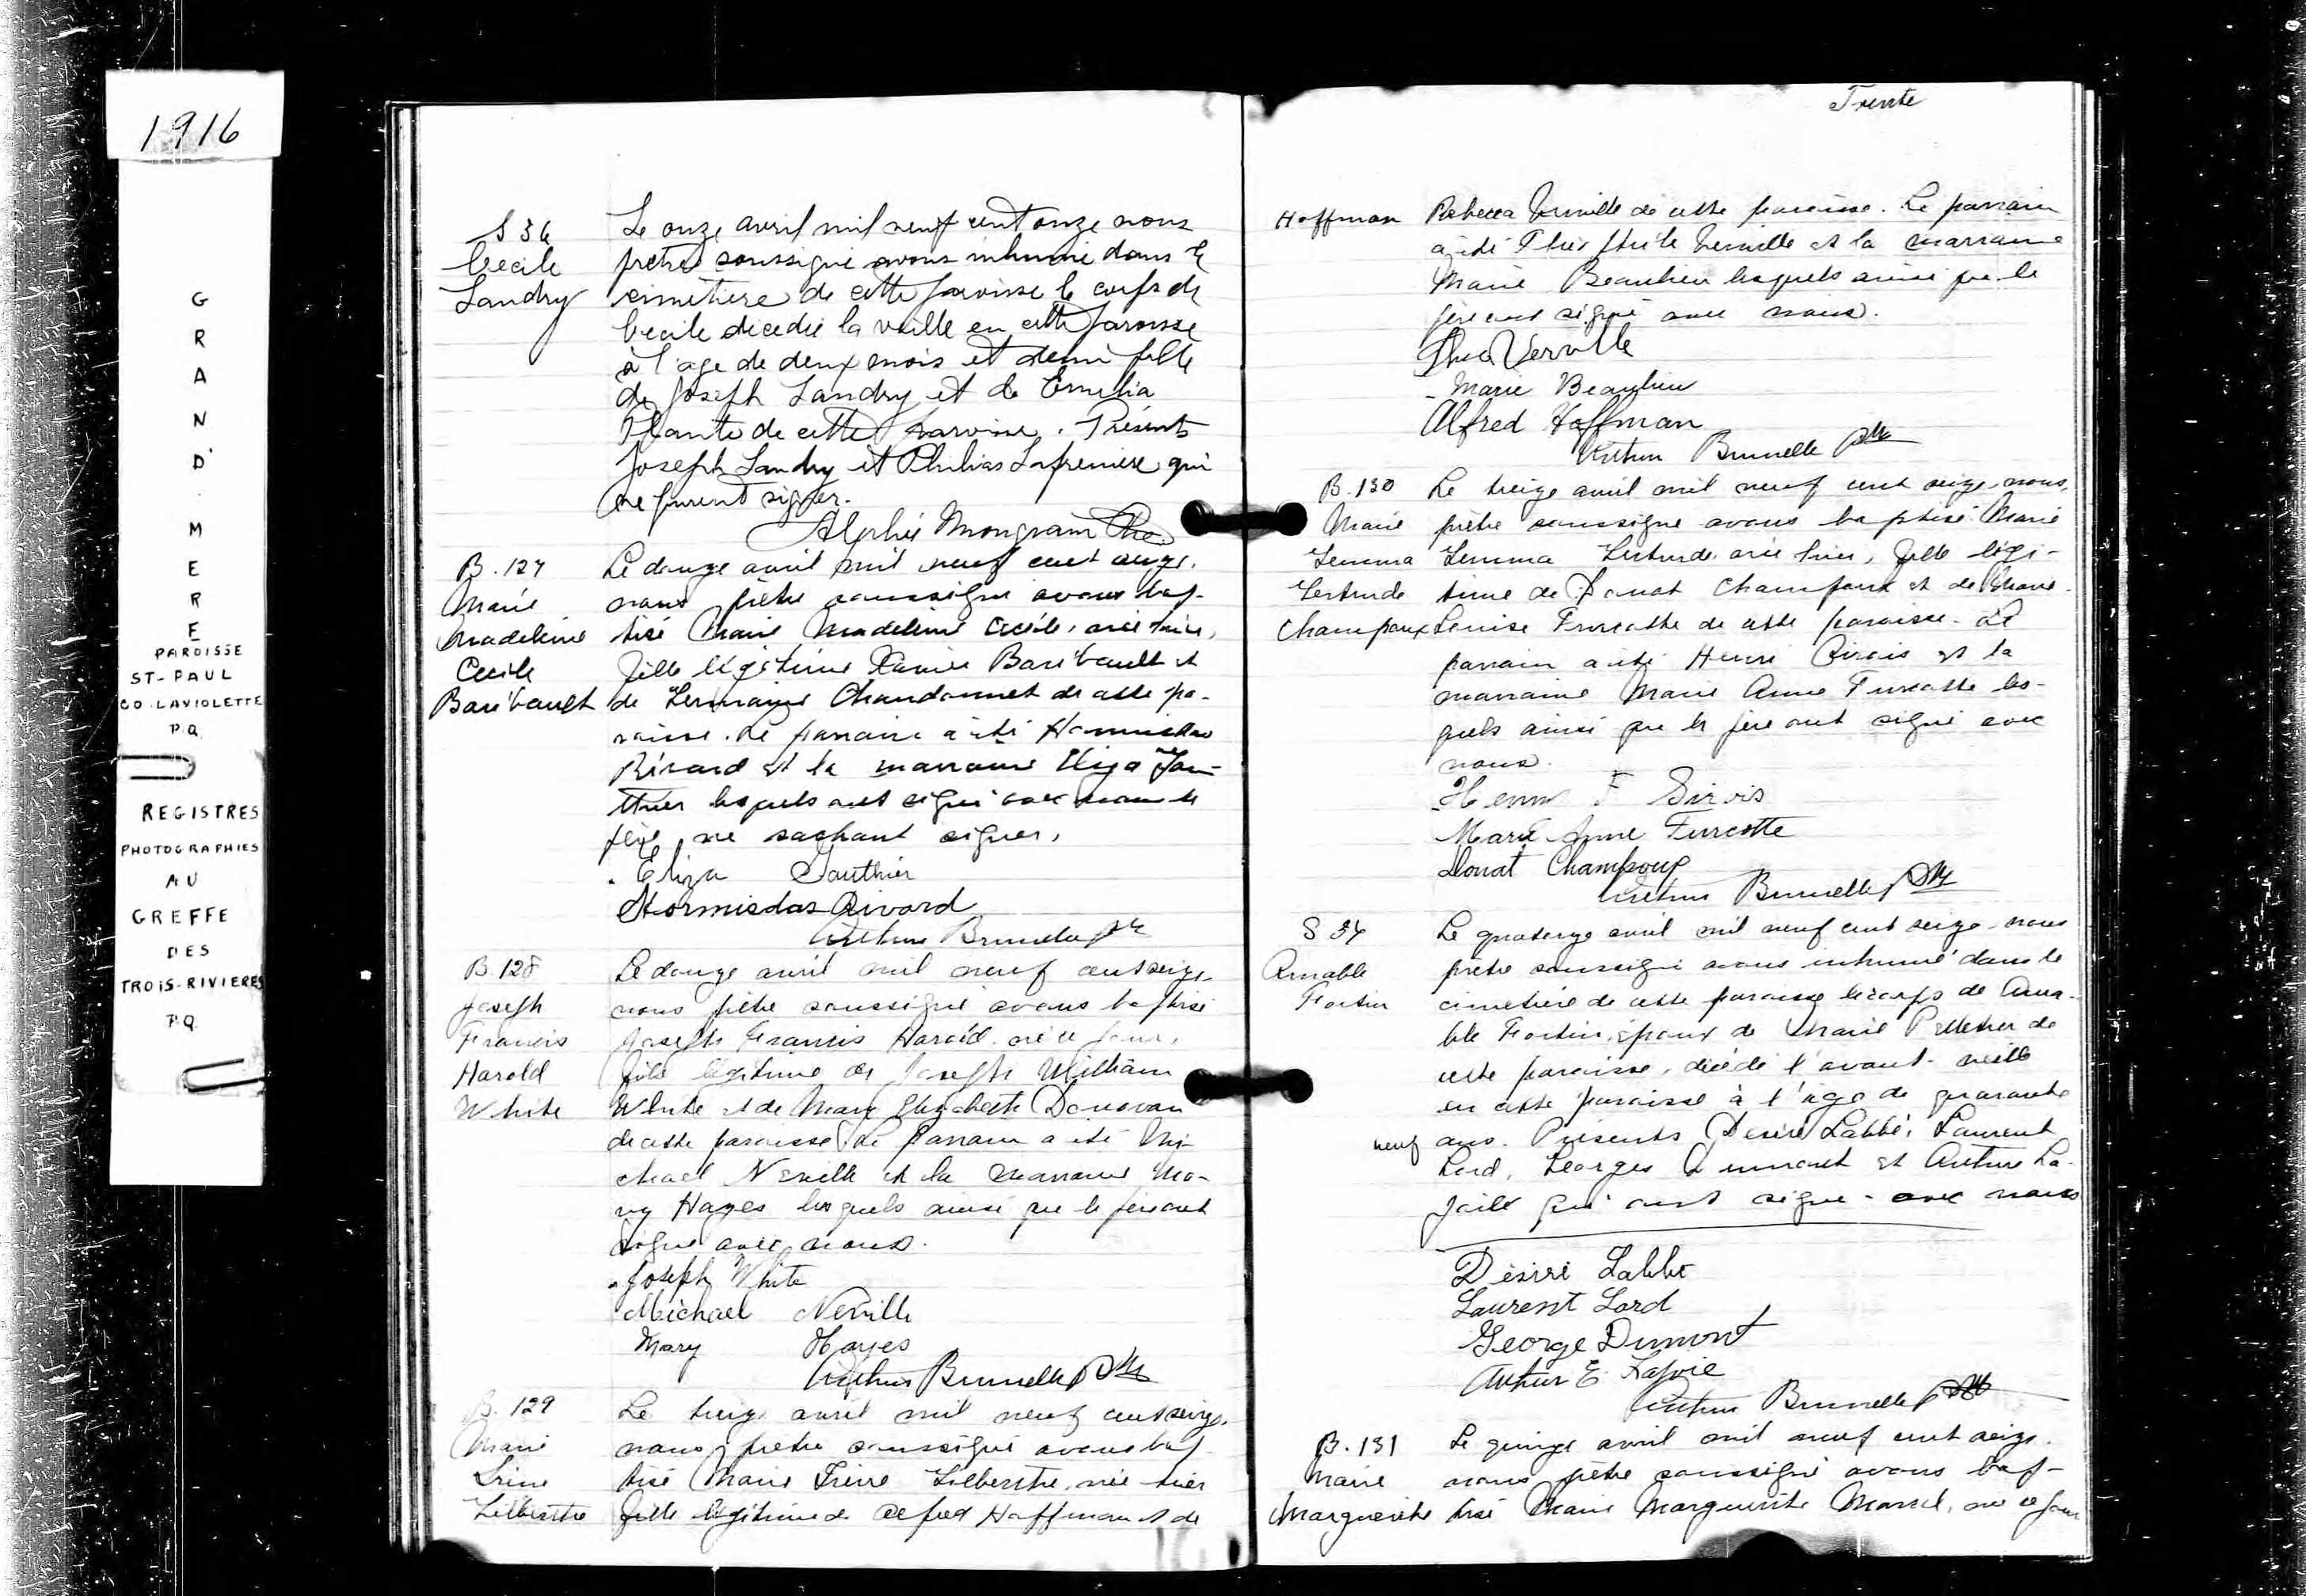 1916
GRAND'MERE
PAROISSE
ST-PAUL
CO. LAVIOLETTE
P.Q.
REGISTRES
PHOTOGRAPHIES
AU
GREFFE
DES
TROIS-RIVIERES
P.Q.
S 36
Cecile
Landry
Le onze avril mil neuf cent onze nous
prêtre soussigné avons inhumé dans le
cimetière de cette paroisse le corps de
Cecile décédée la veille en cette paroisse
à l'age de deux mois et demi fille
de Joseph Landry et de Emelia
Plante de cette paroisse. Présents
Joseph Landry et Philias Lafreniere qui
ne purent signer.
Alphée Mongrain Ptre
B. 127
Marie
Madeleine
Cecile
Baribault
Le douze avril mil neuf cent seize,
nous prêtre soussigné avons bap-
tisé Marie Madeleine Cécile, née hier,
fille légitime Xavier Baribault et
de Germaine Chandonnet de cette pa-
roisse. Le parrain a été Hormisdas
Rivard et la marraine Eliza Gau-
thier lesquels ont signé avec nous le
père ne sachant signer.
Eliza Gauthier
Hormisdas Rivard
Arthur Brunelle Ptre
B. 128
Joseph
Francis
Harold
White
Le douze avril mil neuf cent seize,
nous prêtre soussigné avons baptisé
Joseph Francis Harold né ce jour,
fils légitime de Joseph William
White et de Mary Elizabeth Donovan
de cette paroisse. Le parrain a été Mi-
chael Neville et la marraine Ma-
ry Hayes lesquels ainsi que le père ont
signé avec nous.
Joseph White
Michael Neville
Mary Hayes
Arthur Brunelle Ptre
B. 129
Marie
Irène
Gilberthe
Le treize avril mil neuf cent seize,
nous, prêtre soussigné avons bap-
tisé Marie Irène Gilberthe, née hier
fille légitime de Alfred Hoffman et de
Trente
Hoffman
Rebecca Verville de cette paroisse. Le parrain
a été Théophile Verville et la marraine
Marie Beaulieu lesquels ainsi que le
père ont signé avec nous.
Theo Verville
Marie Beaulieu
Alfred Hoffman
Arthur Brunelle Ptre
B. 130
Marie
Gemma
Gertrude
Champoux
Le treize avril mil neuf cent seize, nous,
prêtre soussigné avons baptisé Marie
Gemma Gertrude née hier, fille légi-
time de Donat Champoux et de Marie
Louise Turcotte de cette paroisse. Le
parrain a été Henri Sirois et la
marraine Marie Anne Turcotte les-
quels ainsi que le père ont signé avec
nous.
Henri F Sirois
Marie Anne Turcotte
Donat Champoux
Arthur Brunelle Ptre
S 37
Amable
Fortin
Le quatorze avril mil neuf cent seize, nous
prêtre soussigné avons inhumé dans le
cimetière de cette paroisse le corps de Ama-
ble Fortin, époux de Marie Pelletier de
cette paroisse, décédé l'avant-veille
en cette paroisse à l'âge de quarante
neuf ans. Présents Désiré Labbé, Laurent
Lord, Georges Dumont et Arthur La-
joie qui ont signé avec nous
Désiré Labbé
Laurent Lord
George Dumont
Arthur E. Lajoie
Arthur Brunelle Ptre
B. 131
Marie
Marguerite
Le quinze avril mil neuf cent seize.
nous prêtre soussigné avons bap-
tisé Marie Marguerite Marcel, née ce jour